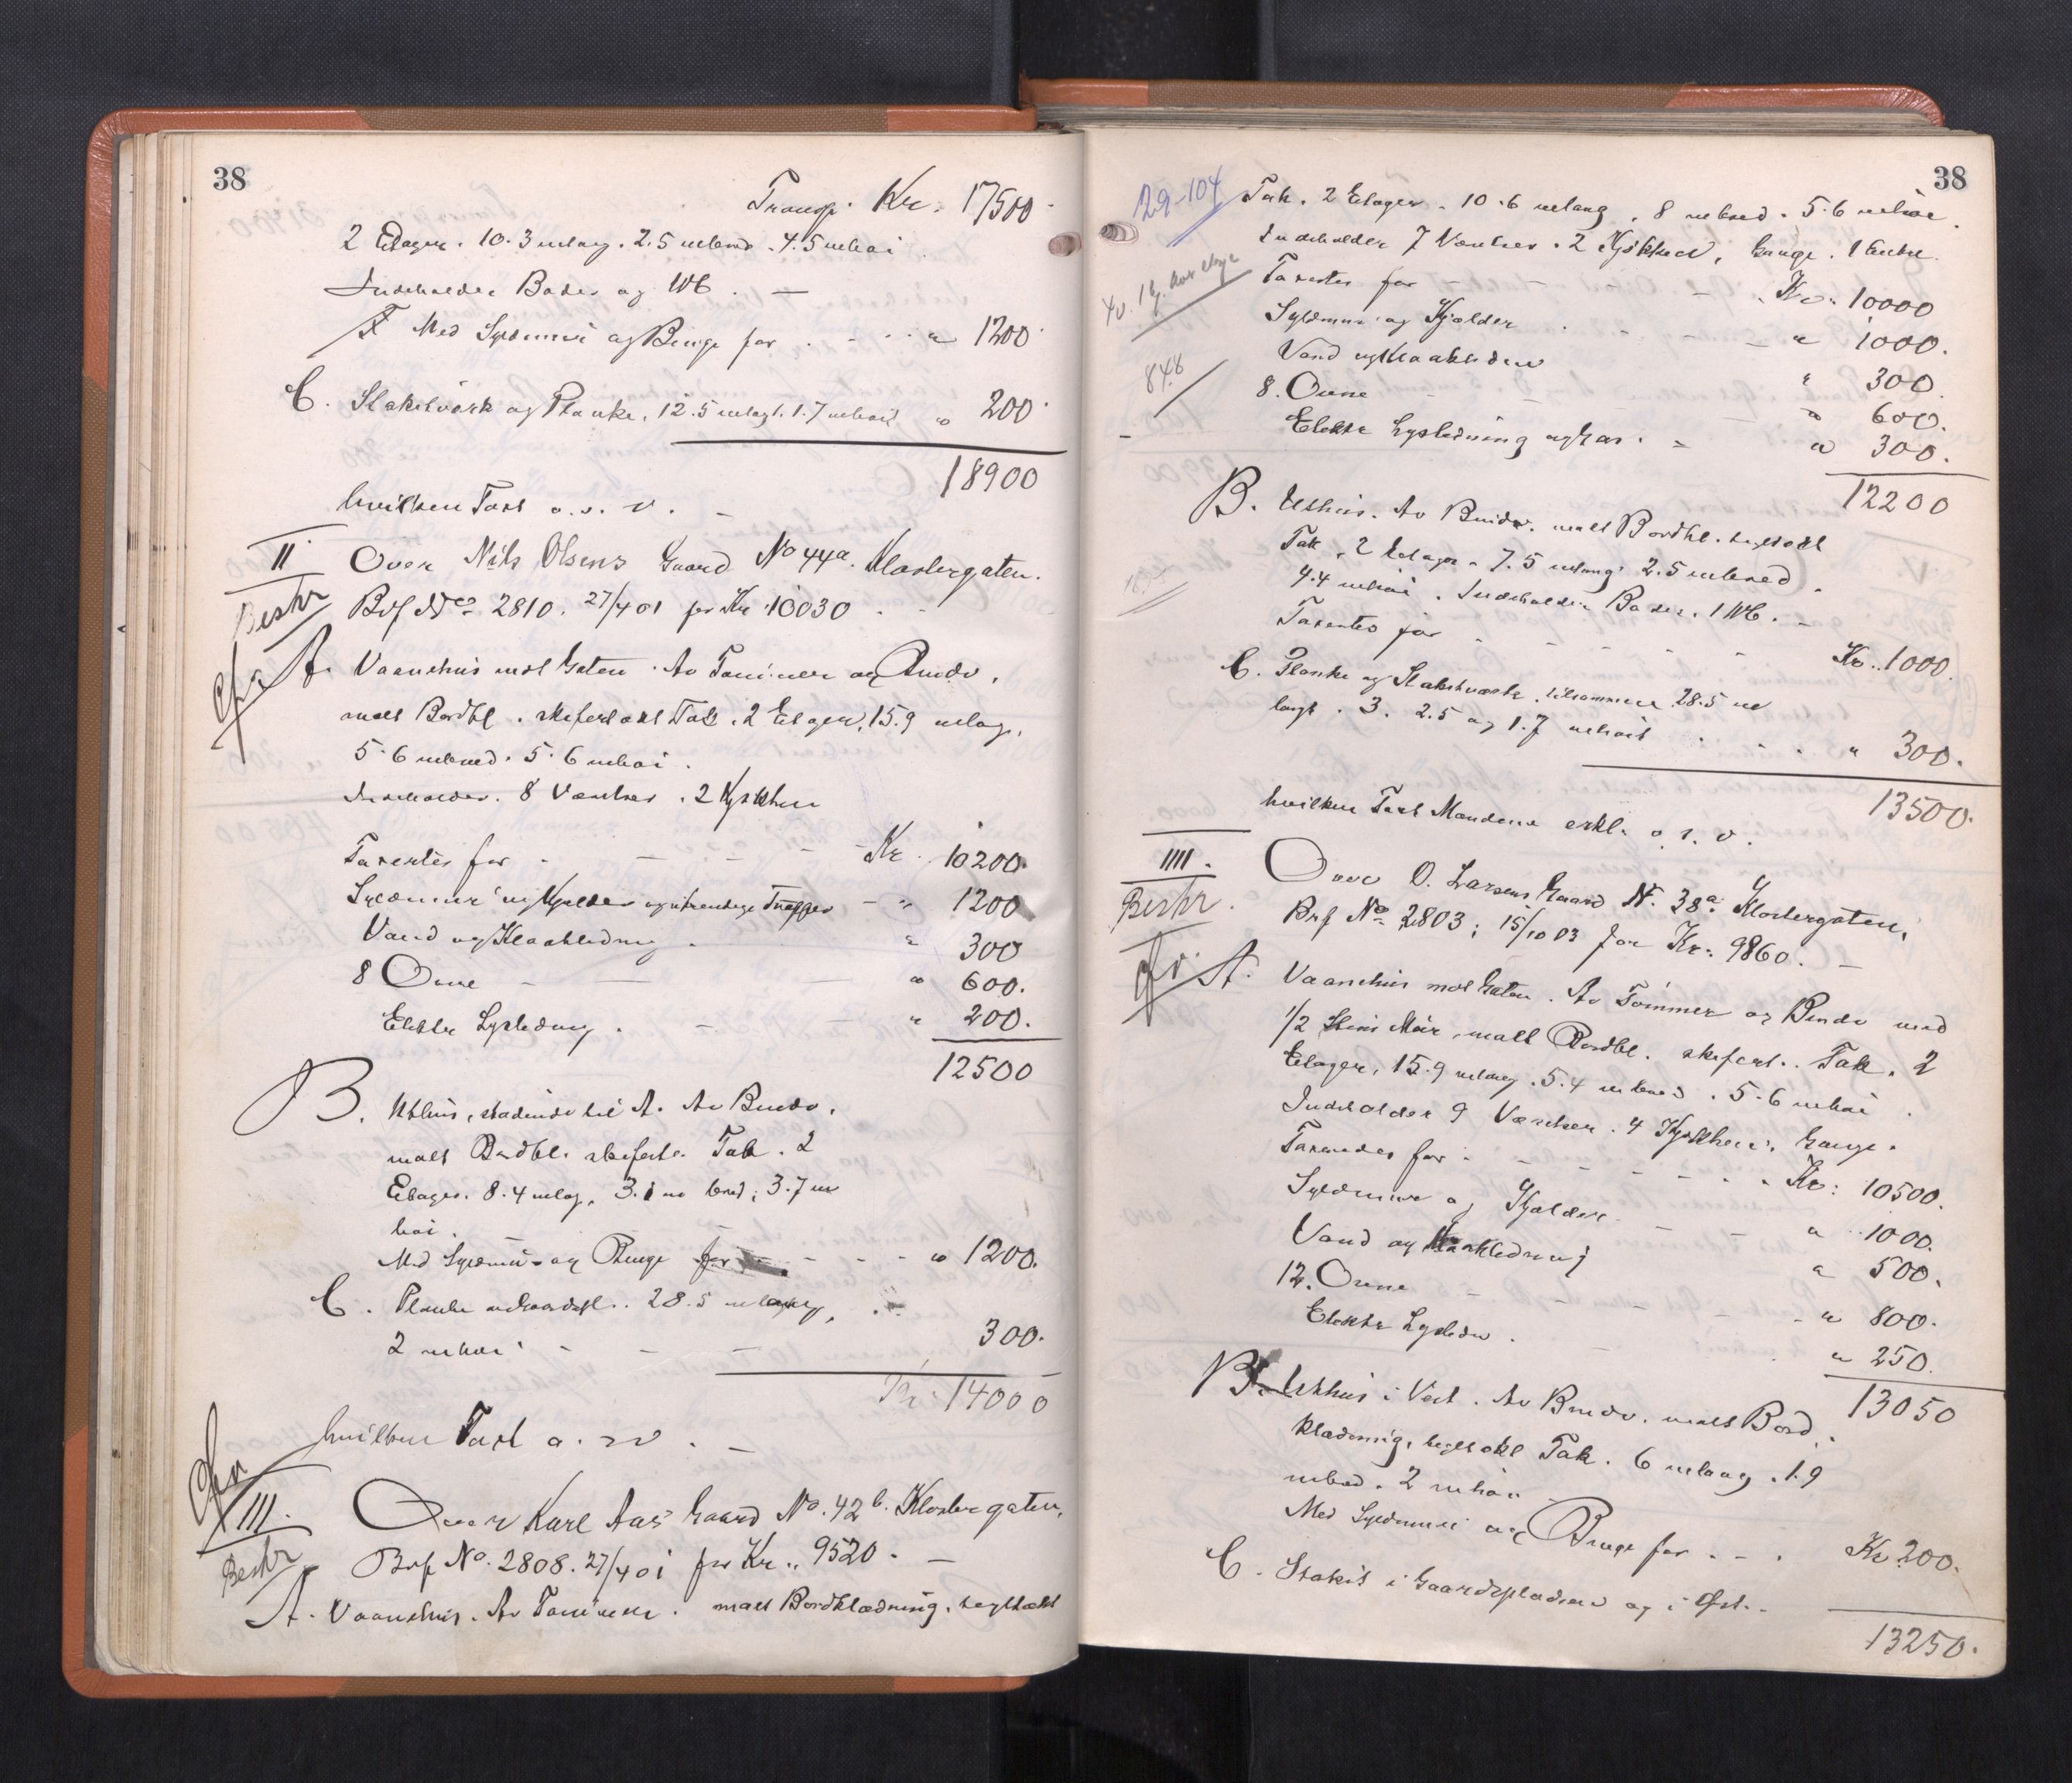 38
Transp. Kr. 17500
2 Etager. 10.3 m lang. 2.5 m bred. 4.5 m høi.
Indeholder Boder og WC. —
Med Syldmur og Binge for . . . " 1200
C. Stakitværk og Planke, 12.5 m langt. 1.7 m høit " 200
18900
hvilken Taxt o.s.v. —
II Over Nils Olsens Gaard No 44a. Klostergaten.
Beskr Brf No 2810. 27/4 01 for Kr. 10030
A. Vaanehus mot Gaten. Av Tømmer og Bindv.
malt Bordkl. skifertækt Tak. 2 Etager, 15.9 m lang,
5.6 m bred. 5.6 m høi.
Indeholder. 8 Værelser. 2 Kjøkken
Taxertes for - — - - Kr. 10200.
Syldmur og Kjelder og utvendige Trapper - " 1200
Vand og Kloakledning . " 300
8 Ovne - — — " 600.
Elektr Lysledning . — " 200.
12500
B. Uthus, stødende til A. Av Bindv.
malt Bordkl. skifert. Tak. 2
Etager. 8.4 m lang, 3.1 m bred, 3.7 m
høi.
Med Syldmur og Binge for - - - - " 1200.
C. Planke 28.5 m lang,
2 m høi - — — 300.
Kr. 14000
hvilken Taxt o.s.v. —
III. Over Karl Aas' Gaard No. 42 b. Klostergaten,
Beskr Brf No. 2808. 27/4 01 for Kr. 9520. —
A. Vaanehus. Av Tømmer. malt Bordklædning, tegltækt
38
29-104
Tak. 2 Etager. 10.6 m lang. 8 m bred. 5.6 m høi.
Indeholder 7 Værelser. 2 Kjøkken, Gange. 1 Entre.
Taxertes for - - - Kr. 10000
Syldmur og Kjælder . - - " 1000.
848
Vand og Kloakledn " 300.
8. Ovne - - - " 600.
Elektr Lysledning og Gas. - " 300.
12200
B. Uthus. Av Bindv. malt Bordkl. tegltækt
Tak, 2 Etager. 7.5 m lang. 2.5 m bred.
4.4 m høi. Indeholder Boder. 1 WC. -
Taxertes for - - - - Kr. 1000.
C. Planke og Stakitværk. tilsammen 28.5 m
langt. 3. 2.5 og 1.7 m høit . . . " 300.
13500.
hvilken Taxt Mændene erkl. o.s.v.
IIII. Over O. Larsens Gaard No. 38a. Klostergaten,
Beskr. Brf No 2803; 15/10 03 for Kr. 9860. —
A. Vaanehus mot Gaten. Av Tømmer og Bindv med
1/2 Stens Mur, malt Bordkl. skifert. Tak. 2
Etager, 15.9 m lang. 5.4 m bred. 5.6 m høi.
Indeholder 9 Værelser. 4 Kjøkken, Gange.
Taxeredes for - - - - Kr: 10500.
Syldmur og Kjælder - - " 1000.
Vand og Kloakledning " 500.
12. Ovne - - - - " 800.
Elektr Lysledn . - " 250.
13050
B. Uthus i Vest. Av Bindv. malt Bord
klædning, tegltækt Tak. 6 m lang. 1.9
m bred. 2 m høi
Med Syldmur og Binge for . - . Kr 200.
C. Stakit i Gaardspladsen og i Øst. -
13250.